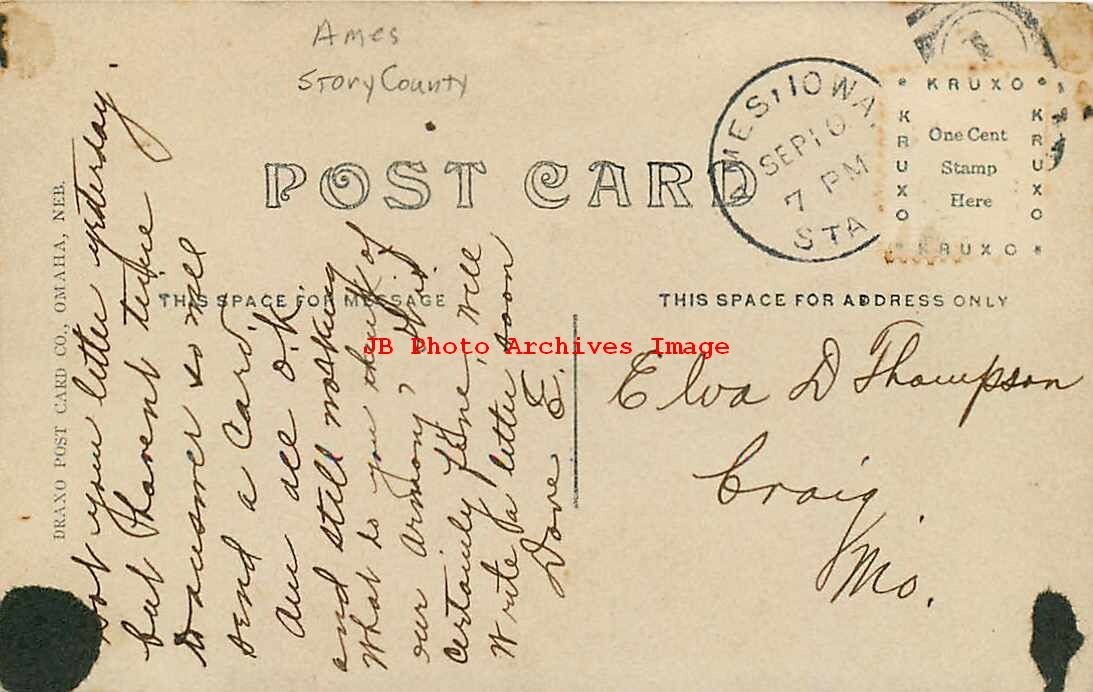 Ames
Story County
POST CARD
AMES, IOWA.
SEP 10
7 PM
STA
KRUXO
KRUXO
KRUXO
KRUXO
One Cent
Stamp
Here
THIS SPACE FOR MESSAGE
THIS SPACE FOR ADDRESS ONLY
DRAXO POST CARD CO., OMAHA, NEB.
Got your letter yesterday
but I havent time
to answer so will
send a card.
Am all o.k.
and still working
What do you think of
our armony?
Certainly fine, will
Write a letter soon
Dove E.
Elva D Thompson
Craig
Mo.
JB Photo Archives Image